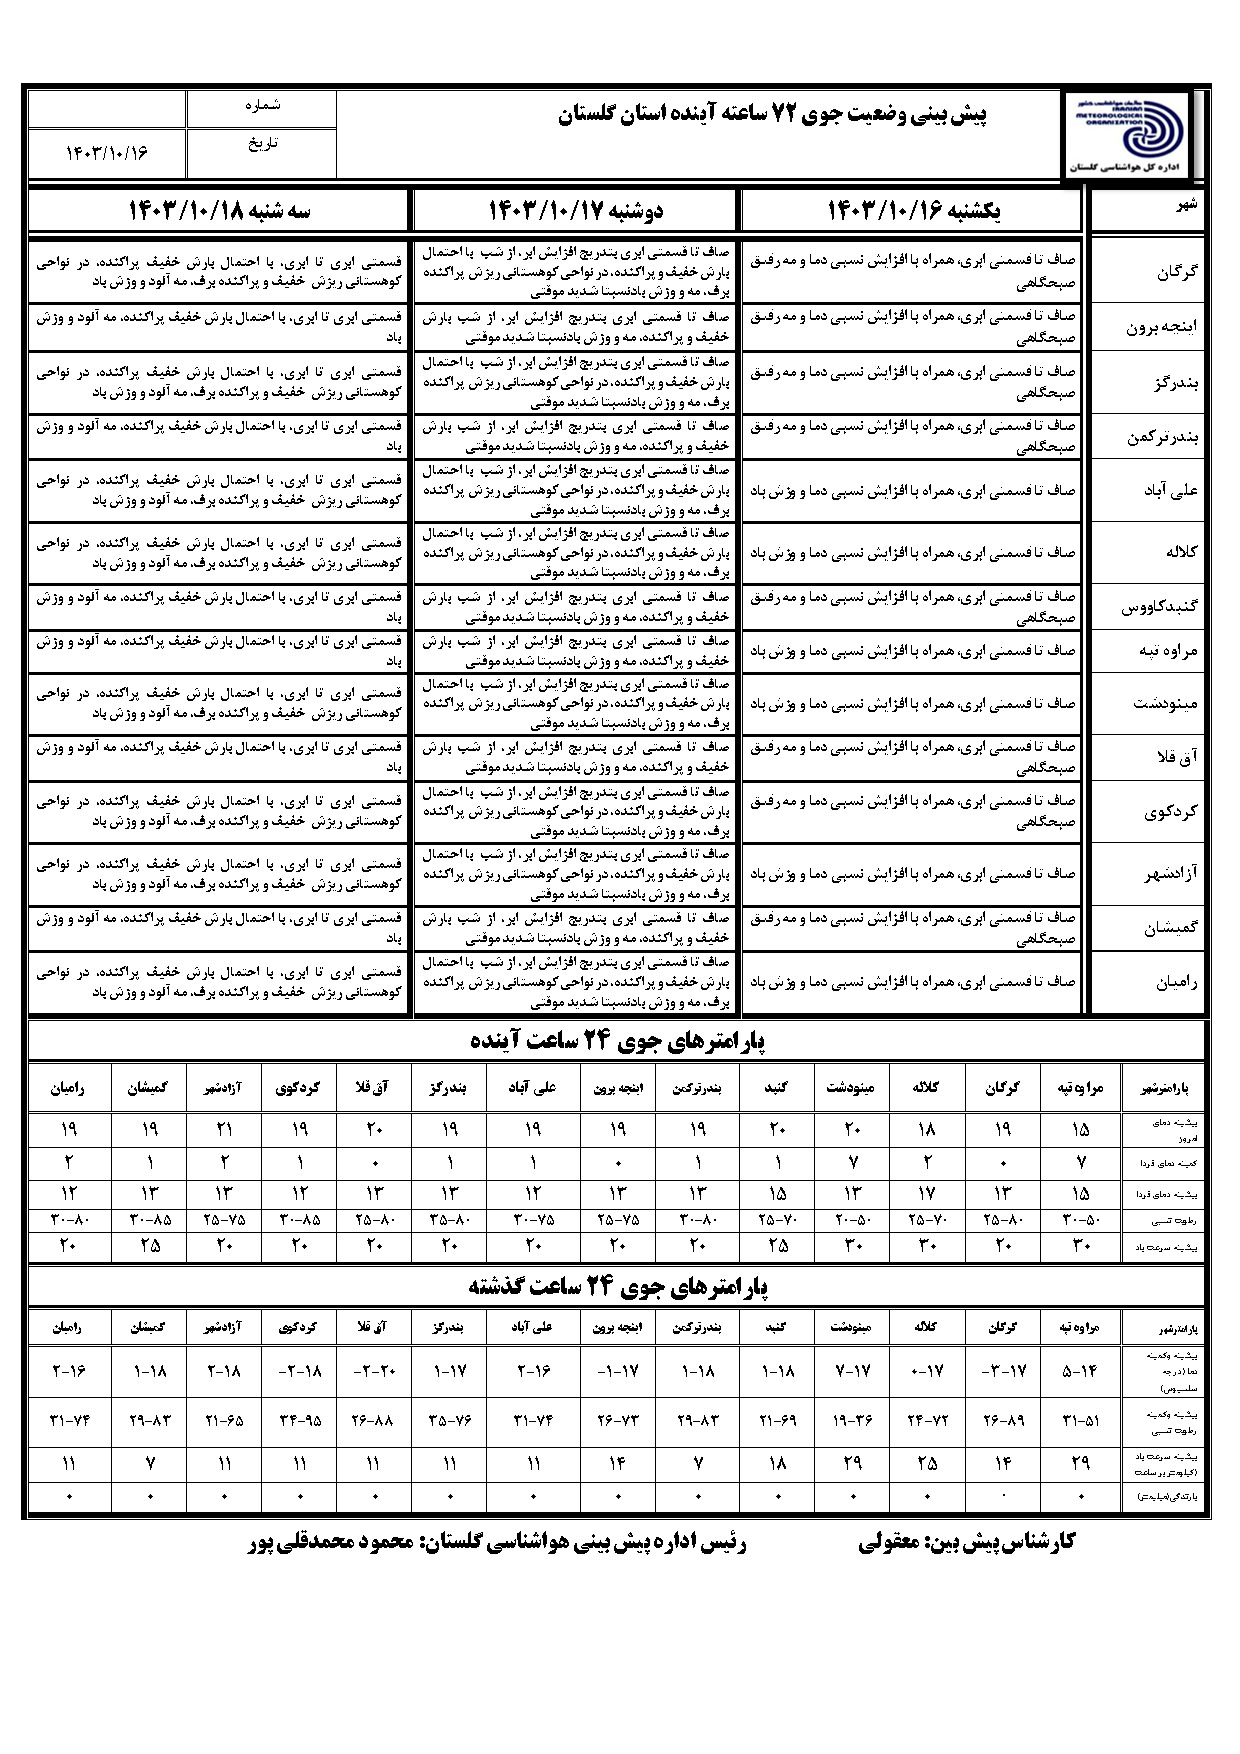 سازمان هواشناسی کشور
IRANIAN
METEOROLOGICAL
ORGANIZATION
اداره کل هواشناسی گلستان
پیش بینی وضعیت جوی ۷۲ ساعته آینده استان گلستان
شماره
تاریخ
۱۴۰۳/۱۰/۱۶
شهر
یکشنبه ۱۴۰۳/۱۰/۱۶
دوشنبه ۱۴۰۳/۱۰/۱۷
سه شنبه ۱۴۰۳/۱۰/۱۸
گرگان
صاف تا قسمتی ابری، همراه با افزایش نسبی دما و مه رقیق
صبحگاهی
صاف تا قسمتی ابری بتدریج افزایش ابر، از شب با احتمال
بارش خفیف و پراکنده، در نواحی کوهستانی ریزش پراکنده
برف، مه و وزش بادنسبتا شدید موقتی
قسمتی ابری تا ابری، با احتمال بارش خفیف پراکنده، در نواحی
کوهستانی ریزش خفیف و پراکنده برف، مه آلود و وزش باد
اینچه برون
صاف تا قسمتی ابری، همراه با افزایش نسبی دما و مه رقیق
صبحگاهی
صاف تا قسمتی ابری بتدریج افزایش ابر، از شب بارش
خفیف و پراکنده، مه و وزش بادنسبتا شدید موقتی
قسمتی ابری تا ابری، با احتمال بارش خفیف پراکنده، مه آلود و وزش
باد
بندرگز
صاف تا قسمتی ابری، همراه با افزایش نسبی دما و مه رقیق
صبحگاهی
صاف تا قسمتی ابری بتدریج افزایش ابر، از شب با احتمال
بارش خفیف و پراکنده، در نواحی کوهستانی ریزش پراکنده
برف، مه و وزش بادنسبتا شدید موقتی
قسمتی ابری تا ابری، با احتمال بارش خفیف پراکنده، در نواحی
کوهستانی ریزش خفیف و پراکنده برف، مه آلود و وزش باد
بندرترکمن
صاف تا قسمتی ابری، همراه با افزایش نسبی دما و مه رقیق
صبحگاهی
صاف تا قسمتی ابری بتدریج افزایش ابر، از شب بارش
خفیف و پراکنده، مه و وزش بادنسبتا شدید موقتی
قسمتی ابری تا ابری، با احتمال بارش خفیف پراکنده، مه آلود و وزش
باد
علی آباد
صاف تا قسمتی ابری، همراه با افزایش نسبی دما و وزش باد
صاف تا قسمتی ابری بتدریج افزایش ابر، از شب با احتمال
بارش خفیف و پراکنده، در نواحی کوهستانی ریزش پراکنده
برف، مه و وزش بادنسبتا شدید موقتی
قسمتی ابری تا ابری، با احتمال بارش خفیف پراکنده، در نواحی
کوهستانی ریزش خفیف و پراکنده برف، مه آلود و وزش باد
کلاله
صاف تا قسمتی ابری، همراه با افزایش نسبی دما و وزش باد
صاف تا قسمتی ابری بتدریج افزایش ابر، از شب با احتمال
بارش خفیف و پراکنده، در نواحی کوهستانی ریزش پراکنده
برف، مه و وزش بادنسبتا شدید موقتی
قسمتی ابری تا ابری، با احتمال بارش خفیف پراکنده، در نواحی
کوهستانی ریزش خفیف و پراکنده برف، مه آلود و وزش باد
گنبدکاووس
صاف تا قسمتی ابری، همراه با افزایش نسبی دما و مه رقیق
صبحگاهی
صاف تا قسمتی ابری بتدریج افزایش ابر، از شب بارش
خفیف و پراکنده، مه و وزش بادنسبتا شدید موقتی
قسمتی ابری تا ابری، با احتمال بارش خفیف پراکنده، مه آلود و وزش
باد
مراوه تپه
صاف تا قسمتی ابری، همراه با افزایش نسبی دما و وزش باد
صاف تا قسمتی ابری بتدریج افزایش ابر، از شب بارش
خفیف و پراکنده، مه و وزش بادنسبتا شدید موقتی
قسمتی ابری تا ابری، با احتمال بارش خفیف پراکنده، مه آلود و وزش
باد
مینودشت
صاف تا قسمتی ابری، همراه با افزایش نسبی دما و وزش باد
صاف تا قسمتی ابری بتدریج افزایش ابر، از شب با احتمال
بارش خفیف و پراکنده، در نواحی کوهستانی ریزش پراکنده
برف، مه و وزش بادنسبتا شدید موقتی
قسمتی ابری تا ابری، با احتمال بارش خفیف پراکنده، در نواحی
کوهستانی ریزش خفیف و پراکنده برف، مه آلود و وزش باد
آق قلا
صاف تا قسمتی ابری، همراه با افزایش نسبی دما و مه رقیق
صبحگاهی
صاف تا قسمتی ابری بتدریج افزایش ابر، از شب بارش
خفیف و پراکنده، مه و وزش بادنسبتا شدید موقتی
قسمتی ابری تا ابری، با احتمال بارش خفیف پراکنده، مه آلود و وزش
باد
کردکوی
صاف تا قسمتی ابری، همراه با افزایش نسبی دما و مه رقیق
صبحگاهی
صاف تا قسمتی ابری بتدریج افزایش ابر، از شب با احتمال
بارش خفیف و پراکنده، در نواحی کوهستانی ریزش پراکنده
برف، مه و وزش بادنسبتا شدید موقتی
قسمتی ابری تا ابری، با احتمال بارش خفیف پراکنده، در نواحی
کوهستانی ریزش خفیف و پراکنده برف، مه آلود و وزش باد
آزادشهر
صاف تا قسمتی ابری، همراه با افزایش نسبی دما و وزش باد
صاف تا قسمتی ابری بتدریج افزایش ابر، از شب با احتمال
بارش خفیف و پراکنده، در نواحی کوهستانی ریزش پراکنده
برف، مه و وزش بادنسبتا شدید موقتی
قسمتی ابری تا ابری، با احتمال بارش خفیف پراکنده، در نواحی
کوهستانی ریزش خفیف و پراکنده برف، مه آلود و وزش باد
گمیشان
صاف تا قسمتی ابری، همراه با افزایش نسبی دما و مه رقیق
صبحگاهی
صاف تا قسمتی ابری بتدریج افزایش ابر، از شب بارش
خفیف و پراکنده، مه و وزش بادنسبتا شدید موقتی
قسمتی ابری تا ابری، با احتمال بارش خفیف پراکنده، مه آلود و وزش
باد
رامیان
صاف تا قسمتی ابری، همراه با افزایش نسبی دما و وزش باد
صاف تا قسمتی ابری بتدریج افزایش ابر، از شب با احتمال
بارش خفیف و پراکنده، در نواحی کوهستانی ریزش پراکنده
برف، مه و وزش بادنسبتا شدید موقتی
قسمتی ابری تا ابری، با احتمال بارش خفیف پراکنده، در نواحی
کوهستانی ریزش خفیف و پراکنده برف، مه آلود و وزش باد
پارامترهای جوی ۲۴ ساعت آینده
پارامترشهر مراوه تپه گرگان کلاله مینودشت گنبد بندرترکمن اینچه برون علی آباد بندرگز آق قلا کردکوی آزادشهر گمیشان رامیان
بیشینه دمای امروز ۱۵ ۱۹ ۱۸ ۲۰ ۲۰ ۱۹ ۱۹ ۱۹ ۱۹ ۲۰ ۱۹ ۲۱ ۱۹ ۱۹
کمینه دمای فردا ۷ ۰ ۲ ۷ ۱ ۱ ۰ ۱ ۱ ۰ ۱ ۲ ۱ ۲
بیشینه دمای فردا ۱۵ ۱۳ ۱۷ ۱۳ ۱۵ ۱۳ ۱۳ ۱۲ ۱۳ ۱۳ ۱۲ ۱۳ ۱۳ ۱۲
رطوبت نسبی ۳۰-۵۰ ۲۵-۸۰ ۲۵-۷۰ ۲۰-۵۰ ۲۵-۷۰ ۳۰-۸۰ ۲۵-۷۵ ۳۰-۷۵ ۳۵-۸۰ ۲۵-۸۰ ۳۰-۸۵ ۲۵-۷۵ ۳۰-۸۵ ۳۰-۸۰
بیشینه سرعت باد ۳۰ ۲۰ ۳۰ ۳۰ ۲۵ ۲۰ ۲۰ ۲۰ ۲۰ ۲۰ ۲۰ ۲۰ ۲۵ ۲۰
پارامترهای جوی ۲۴ ساعت گذشته
پارامترشهر مراوه تپه گرگان کلاله مینودشت گنبد بندرترکمن اینچه برون علی آباد بندرگز آق قلا کردکوی آزادشهر گمیشان رامیان
بیشینه وکمینه دما (درجه سلسیوس) ۵-۱۴ -۳-۱۷ ۰-۱۷ ۷-۱۷ ۱-۱۸ ۱-۱۸ -۱-۱۷ ۲-۱۶ ۱-۱۷ -۲-۲۰ -۲-۱۸ ۲-۱۸ ۱-۱۸ ۲-۱۶
بیشینه وکمینه رطوبت نسبی ۳۱-۵۱ ۲۶-۸۹ ۲۴-۷۲ ۱۹-۳۶ ۲۱-۶۹ ۲۹-۸۳ ۲۶-۷۳ ۳۱-۷۴ ۳۵-۷۶ ۲۶-۸۸ ۳۴-۹۵ ۲۱-۶۵ ۲۹-۸۳ ۳۱-۷۴
بیشینه سرعت باد (کیلومتر بر ساعت) ۲۹ ۱۴ ۲۵ ۲۹ ۱۸ ۷ ۱۴ ۱۱ ۱۱ ۱۱ ۱۱ ۱۱ ۷ ۱۱
بارندگی(میلیمتر) ۰ ۰ ۰ ۰ ۰ ۰ ۰ ۰ ۰ ۰ ۰ ۰ ۰ ۰
کارشناس پیش بین: معقولی
رئیس اداره پیش بینی هواشناسی گلستان: محمود محمدقلی پور